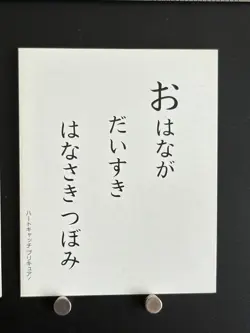 おはなが
だいすき
はなさきつぼみ
ハートキャッチプリキュア!